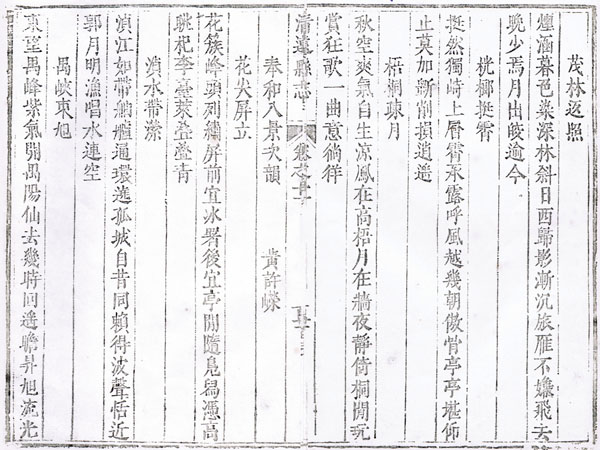 茂林返照
煙涵暮色染深林斜日西歸影漸沉旅雁不嫌飛去
晚少焉月出皎逾今
桄榔挺霄
挺然獨崎上層霄承露呼風越幾朝傲骨亭亭堪仰
止莫加斲削損逍遥
梧桐疎月
秋空爽氣自生凉鳳在高梧月在牆夜靜倚桐閒玩
賞狂歌一曲意徜徉
清遠縣志 卷之十
奉和八景次韻 黄許嶸
花尖屏立
花簇峰頭列繡屏前宜冰署後宜亭閒隨凫舄憑高
眺杞李臺萊叠叠青
湞水帶瀠
湞江如帶舳艫通環遶孤城自昔同頼得波聲恬近
郭月明漁唱水連空
禺峽東旭
東望禺峰紫氣開禺陽仙去幾時回遙瞻昇旭流光